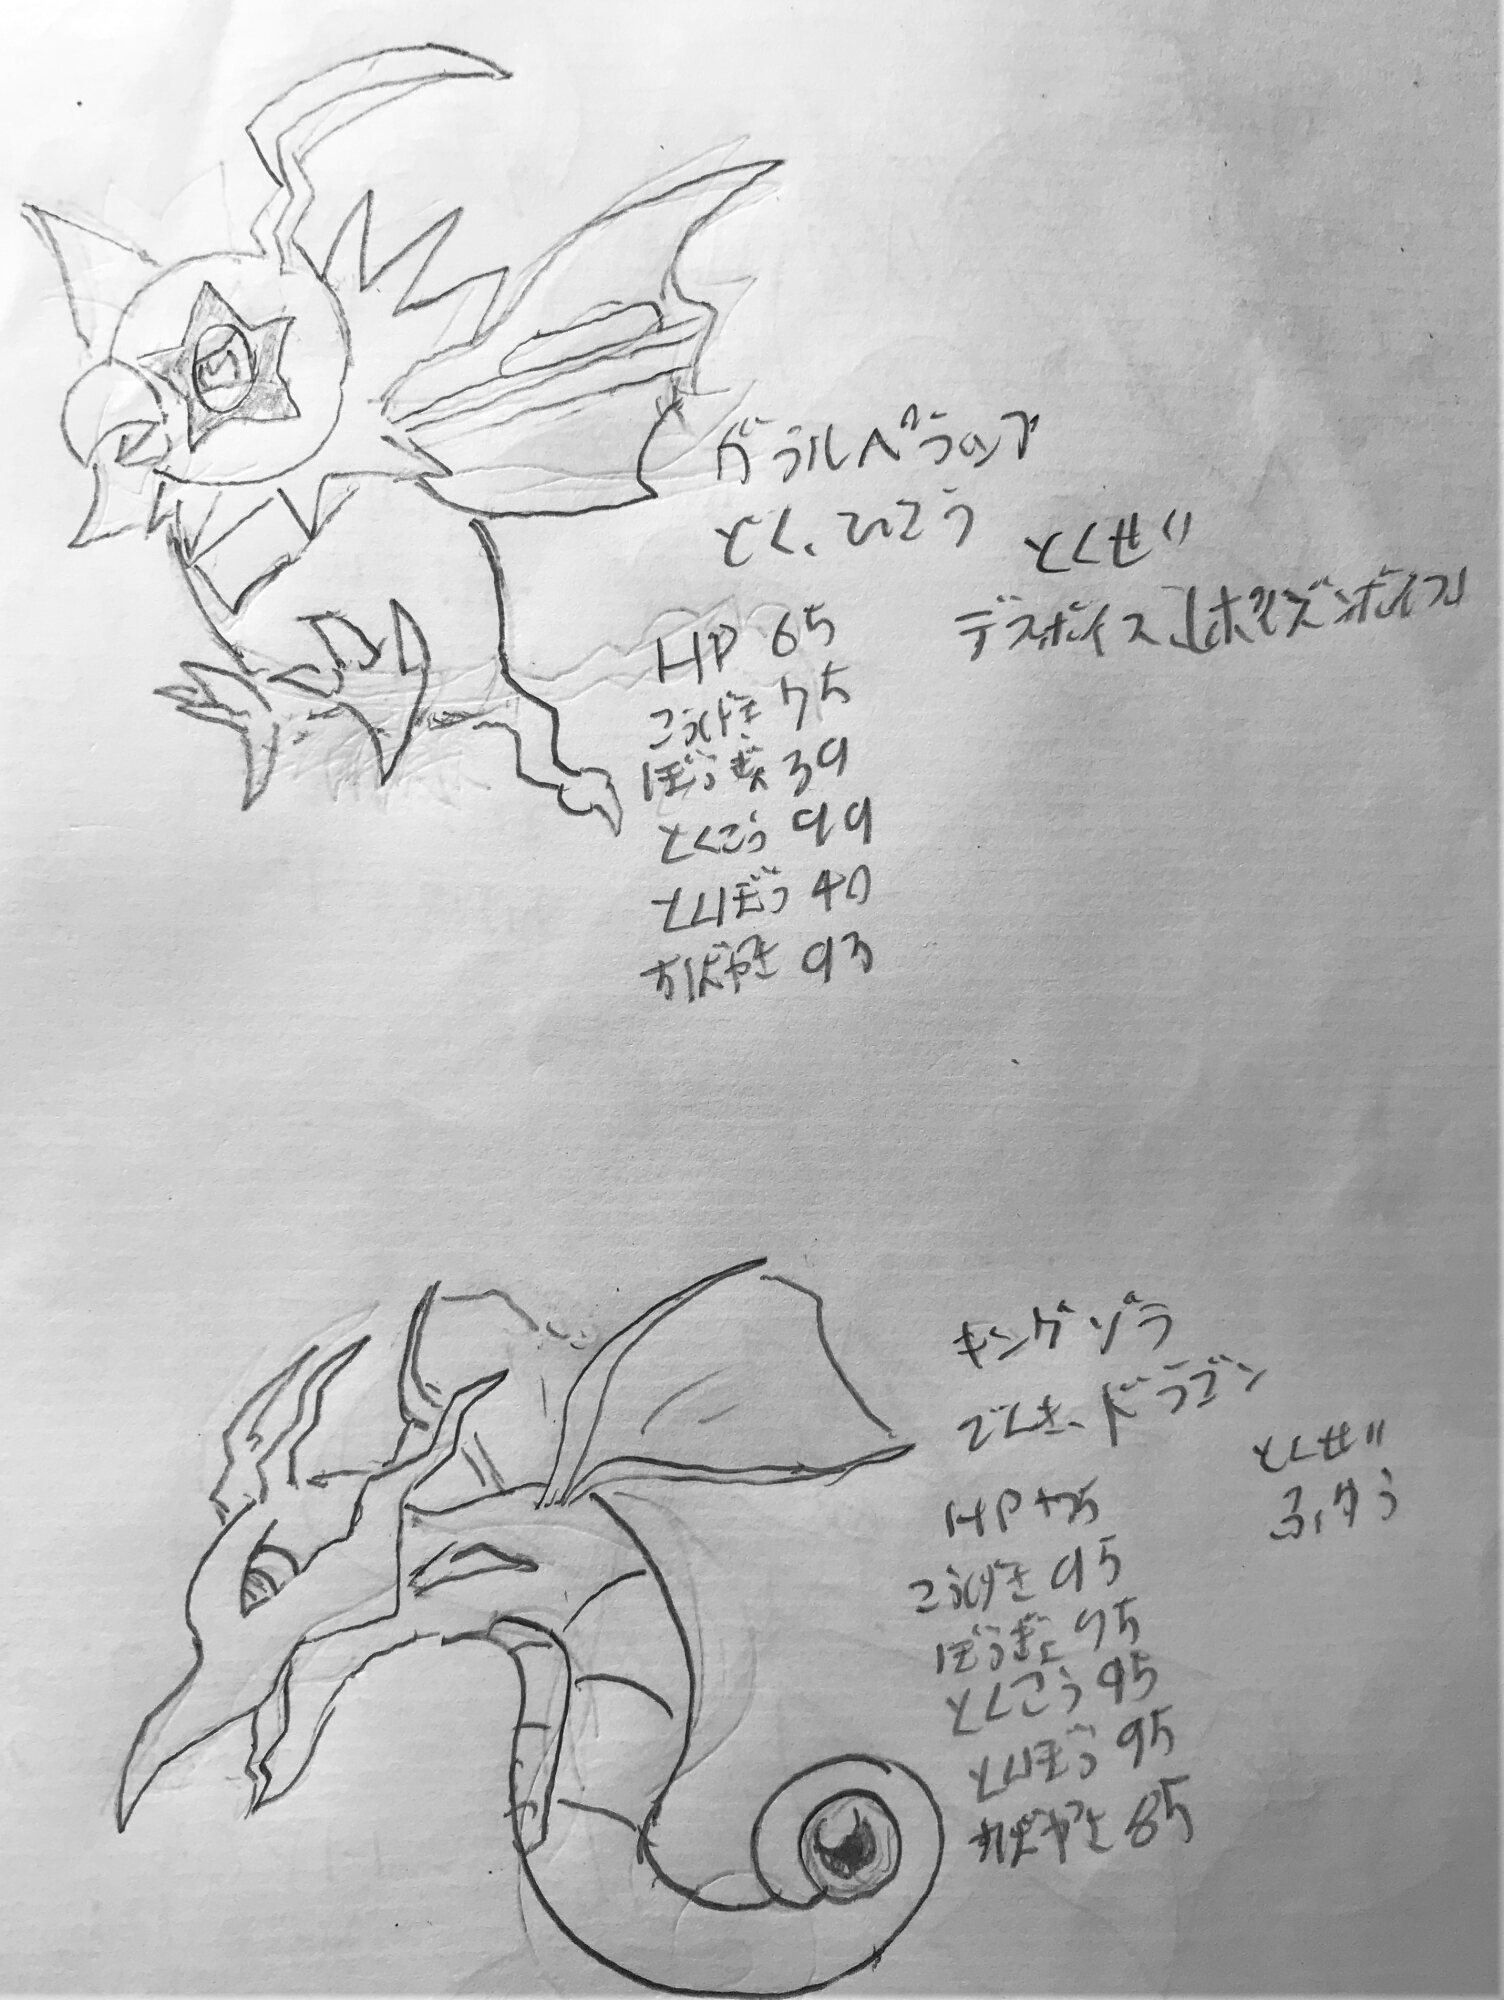 ガラルペラップ
どく、ひこう
とくせい
デスボイス ポイズンボイス
HP 65
こうげき 75
ぼうぎょ 39
とくこう 99
とくぼう 40
すばやさ 93
キングゾラ
でんき、ドラゴン
とくせい
ふゆう
HP
こうげき 95
ぼうぎょ 75
とくこう 95
とくぼう 95
すばやさ 85